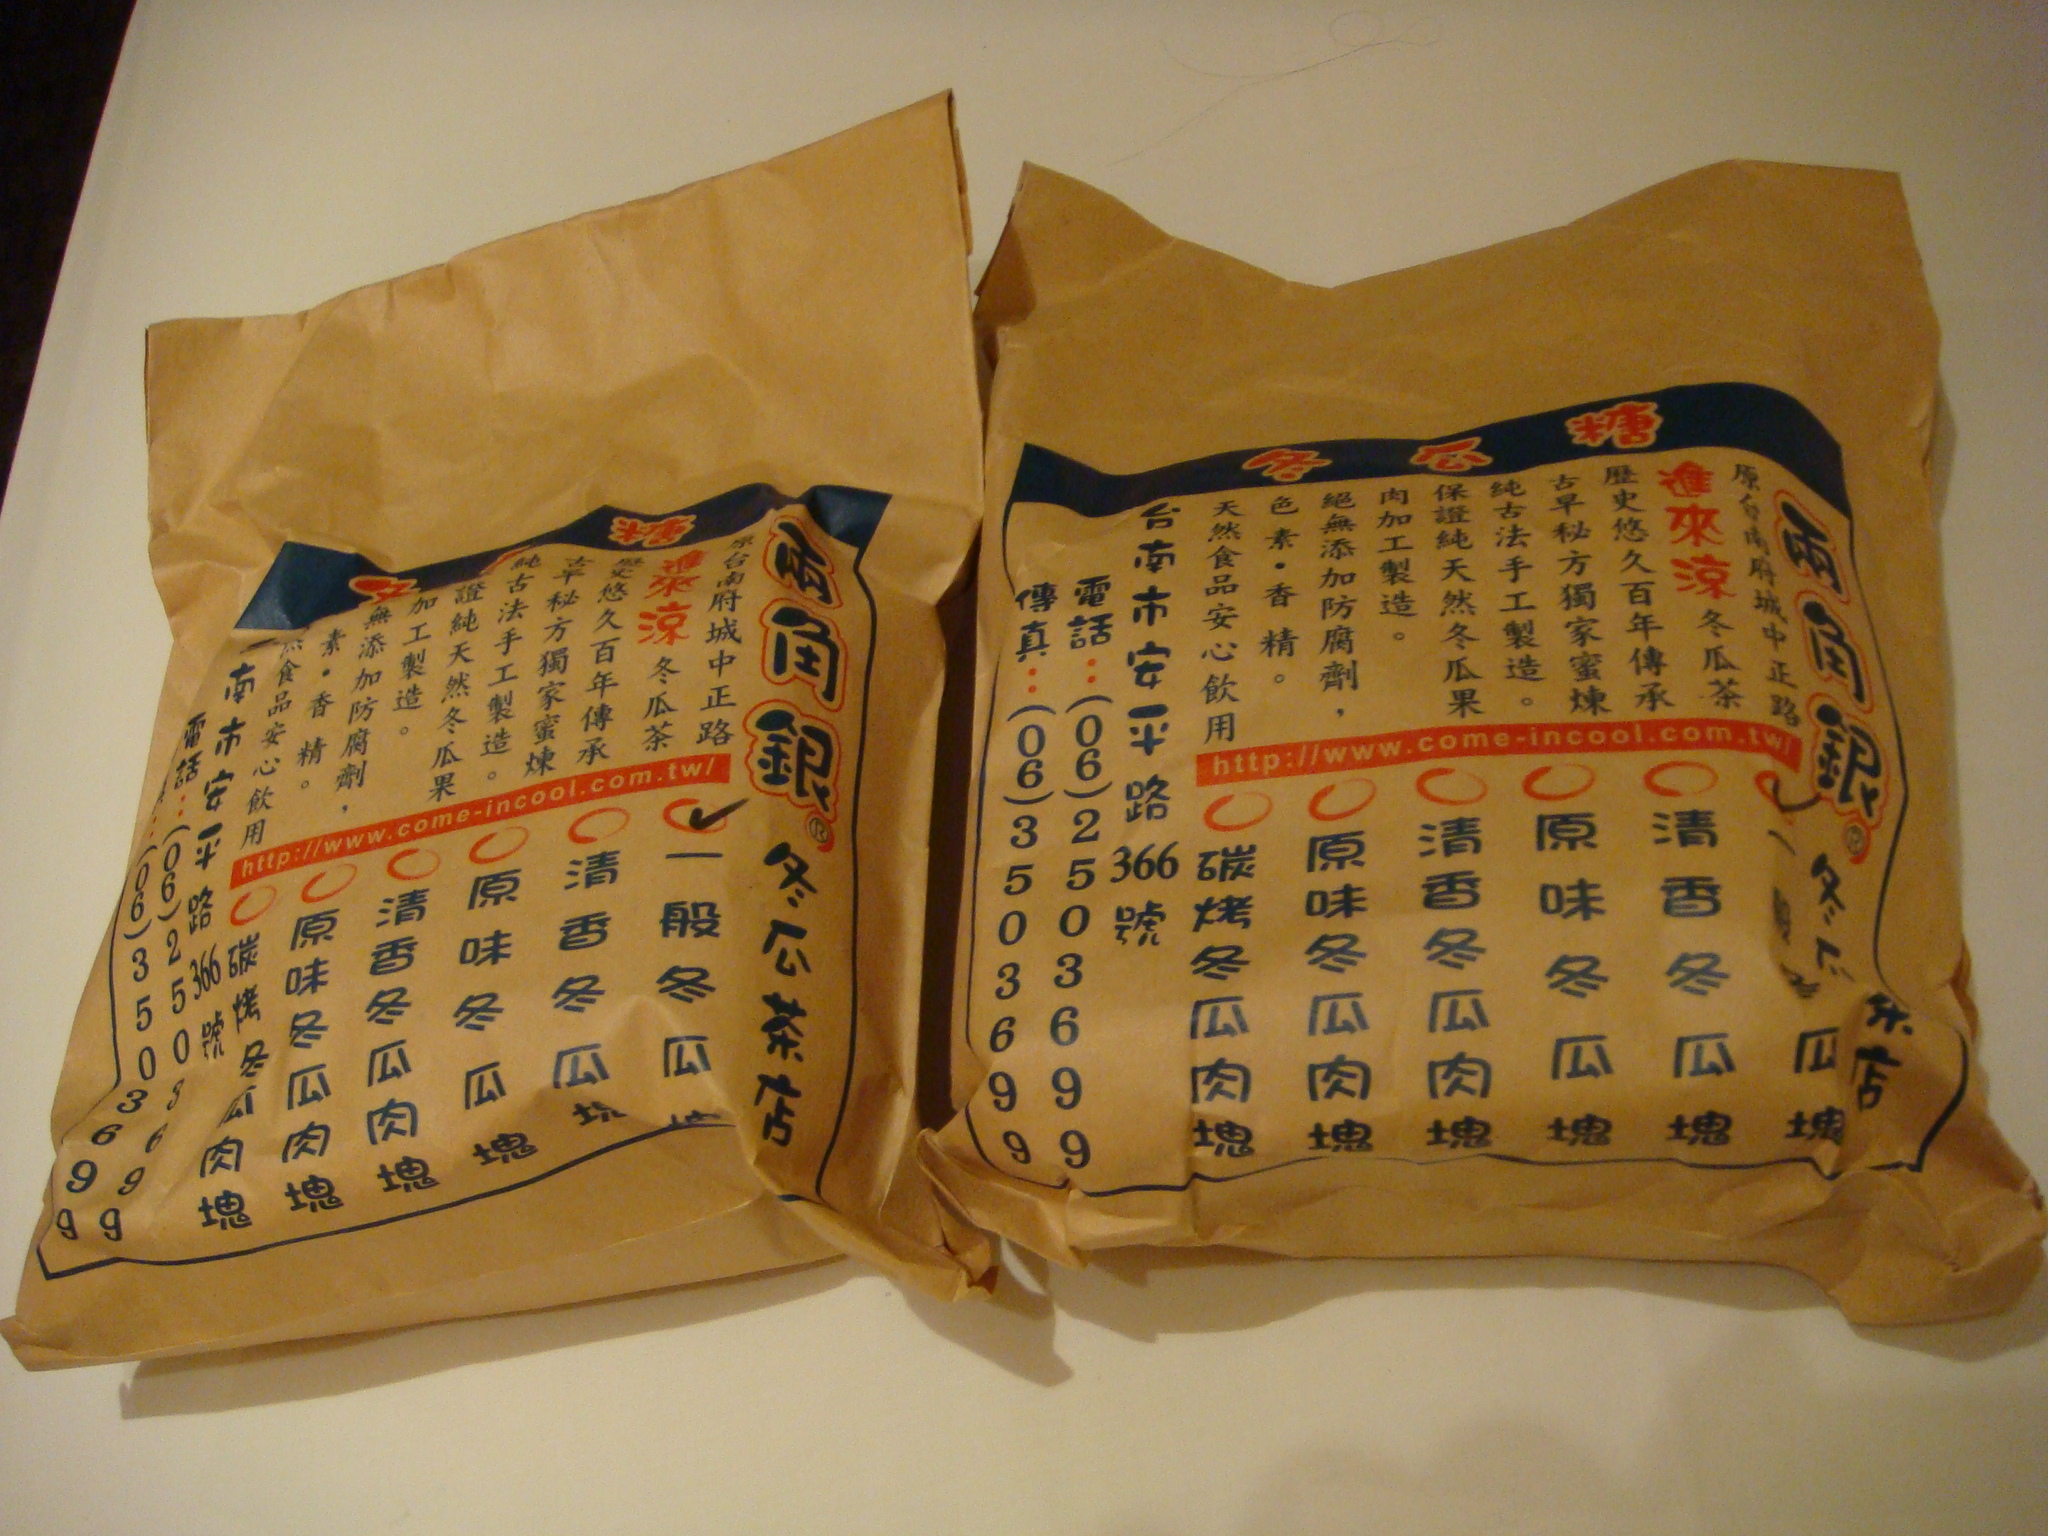 糖
兩角銀®冬瓜茶店
原台南府城中正路
進來涼 冬瓜茶
歷史悠久百年傳承
古早秘方獨家蜜煉
純古法手工製造。
證純天然冬瓜果
加工製造。
無添加防腐劑，
素•香精。
然食品安心飲用
http://www.come-incool.com.tw/
一般冬瓜
清香冬瓜塊
原味冬瓜塊
清香冬瓜肉塊
原味冬瓜肉塊
碳烤冬瓜肉塊
南市安平路366號
電話：(06)2503699
(06)3503699
冬瓜糖
兩角銀®冬瓜茶店
原台南府城中正路
進來涼 冬瓜茶
歷史悠久百年傳承
古早秘方獨家蜜煉
純古法手工製造。
保證純天然冬瓜果
肉加工製造。
絕無添加防腐劑，
色素•香精。
天然食品安心飲用
http://www.come-incool.com.tw/
一般冬瓜塊
清香冬瓜塊
原味冬瓜塊
清香冬瓜肉塊
原味冬瓜肉塊
碳烤冬瓜肉塊
台南市安平路366號
電話：(06)2503699
傳真：(06)3503699